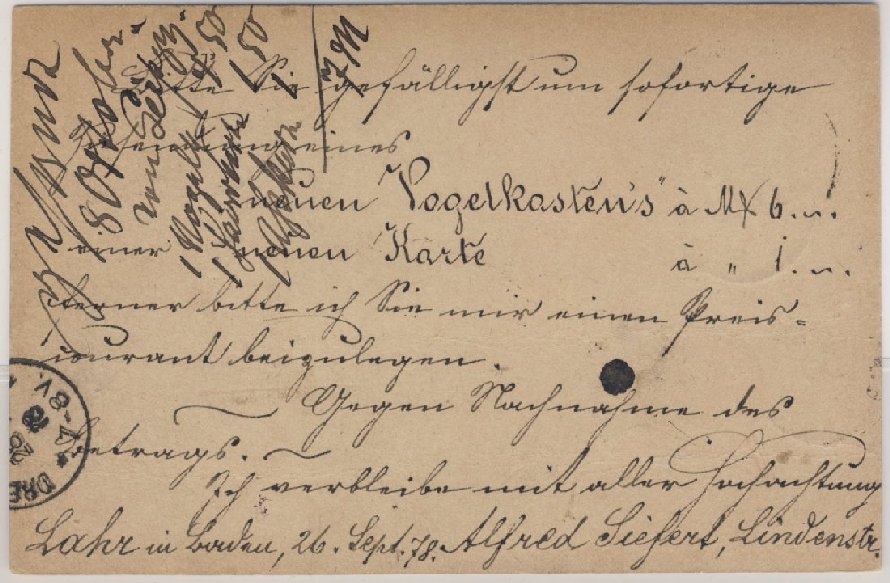 Bitte Sie gefälligst um sofortige
Zusendung eines
neuen „Vogelkasten's" à Mk 6.„.
einer neuen Karte à „ 1.„.
Ferner bitte ich Sie mir einen Preis-
courant beizulegen.
Gegen Nachnahme des
Betrags.
Ich verbleibe mit aller Hochachtung
Lahr in Baden, 26. Sept. 78. Alfred Siefert, Lindenstr.
7 M
4 50
1 50
1.
DRE
7-8 V.